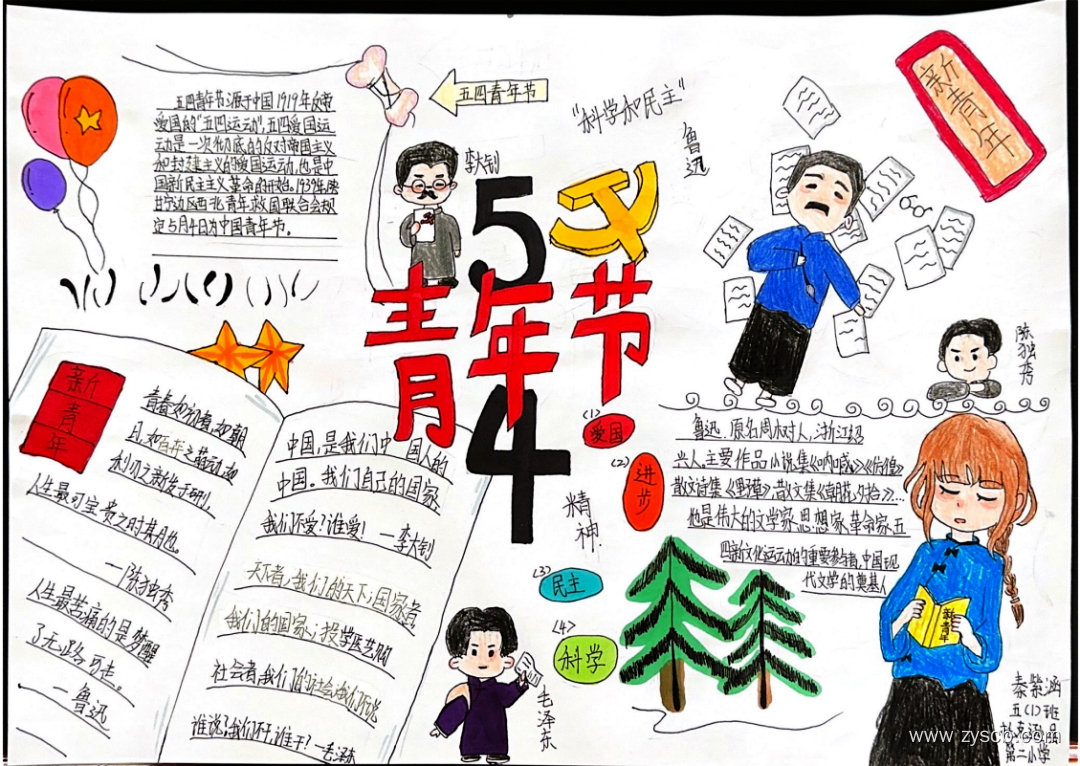 五四青年节源于中国1919年反帝
爱国的“五四运动”,五四爱国运
动是一次彻底的反对帝国主义
和封建主义的爱国运动,也是中
国新民主主义革命的开始。1939年陕
甘宁边区西北青年救国联合会规
定5月4日为中国青年节。
五四青年节
“科学和民主”
鲁迅
李大钊
新青年
5
青年节
4
陈独秀
新
青
年
青春如初春,如朝
日,如百卉之萌动,如
利刃之新发于硎,
人生最可宝贵之时期也。
—陈独秀
人生最苦痛的是梦醒
了无路可走。
—鲁迅
中国,是我们中国人的
中国。我们自己的国家,
我们不爱?谁爱!—李大钊
天下者,我们的天下;国家者
我们的国家;
社会者,我们的社会,我们不说
谁说?我们不干,谁干?—毛泽东
精神
<1>
爱国
<2>
进步
<3>
民主
<4>
科学
毛泽东
鲁迅.原名周树人,浙江绍
兴人。主要作品小说集《呐喊》《彷徨》
散文诗集《野草》.散文集《朝花夕拾》...
他是伟大的文学家.思想家.革命家.五
四新文化运动的重要参与者,中国现
代文学的奠基人
新青年
秦紫涵
五(1)班
第二小学